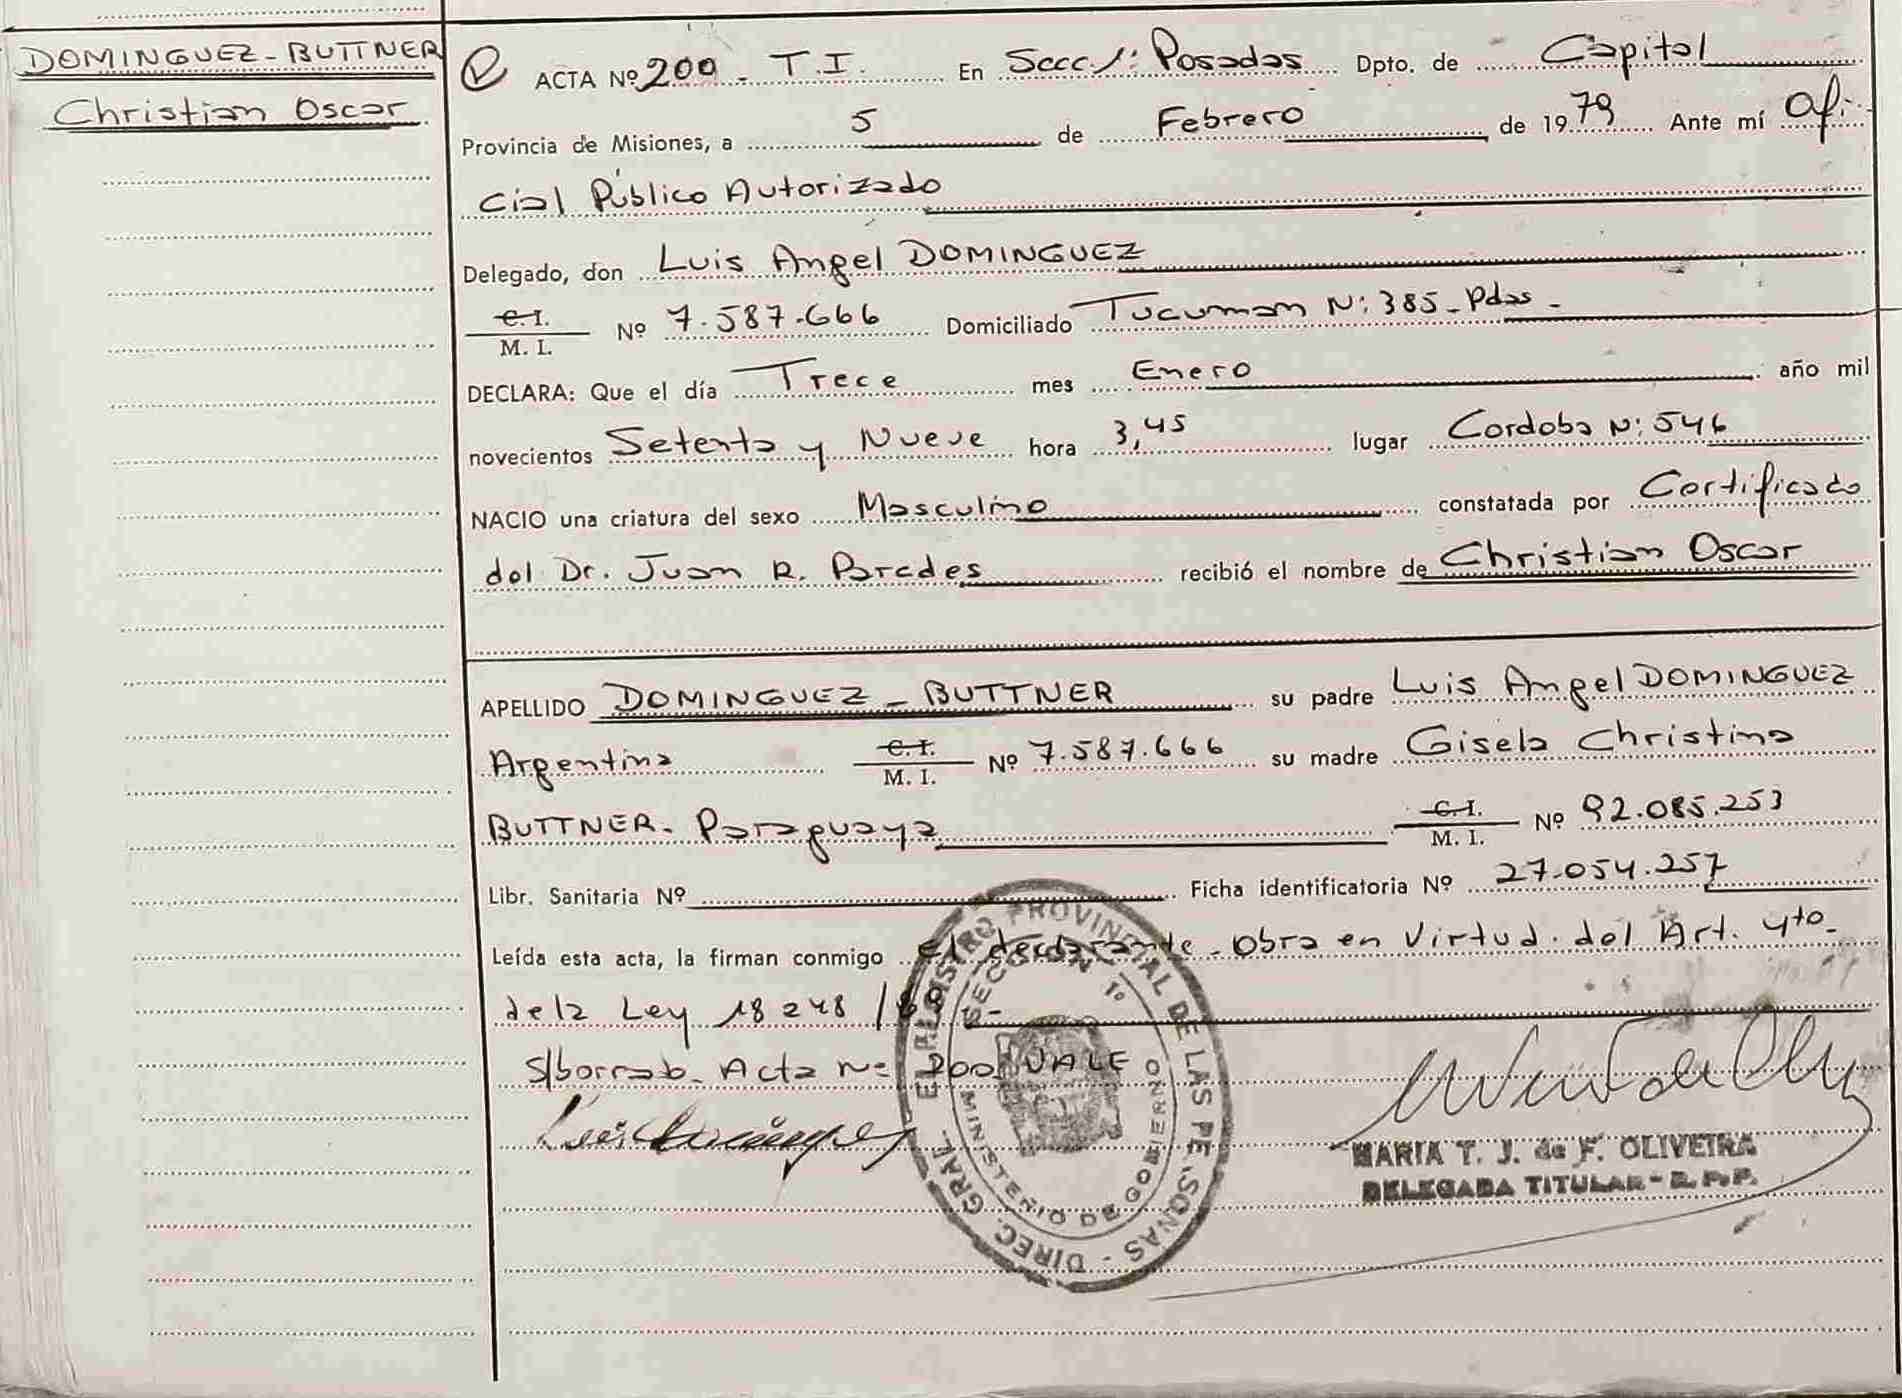 DOMINGUEZ - BUTTNER
Christian Oscar
ACTA Nº 200 - T.I. En Secc 1: Posadas Dpto. de Capital
Provincia de Misiones, a 5 de Febrero de 1979 Ante mí Ofi-
cial Público Autorizado
Delegado, don Luis Angel DOMINGUEZ
C. I.
M. I. Nº 7.587.666 Domiciliado Tucuman N: 385 - Pdas -
DECLARA: Que el día Trece mes Enero año mil
novecientos Setenta y Nueve hora 3,45 lugar Cordoba N: 546
NACIO una criatura del sexo Masculino constatada por Certificado
del Dr. Juan R. Paredes recibió el nombre de Christian Oscar
APELLIDO DOMINGUEZ - BUTTNER su padre Luis Angel DOMINGUEZ
Argentina C. I. M. I. Nº 7.587.666 su madre Gisela Christina
BUTTNER - Paraguaya C. I. M. I. Nº 92.085.253
Libr. Sanitaria Nº Ficha identificatoria Nº 27.054.257
Leída esta acta, la firman conmigo el declarante - Obra en Virtud del Art. 4to -
de la Ley 18248/69 -
S/borrab. Acta N= 200 VALE
MARIA T. J. de F. OLIVEIRA
DELEGADA TITULAR - R. P. P.
DIREC. GRAL. REGISTRO PROVINCIAL DE LAS PERSONAS
SECCION 1º
MINISTERIO DE GOBIERNO